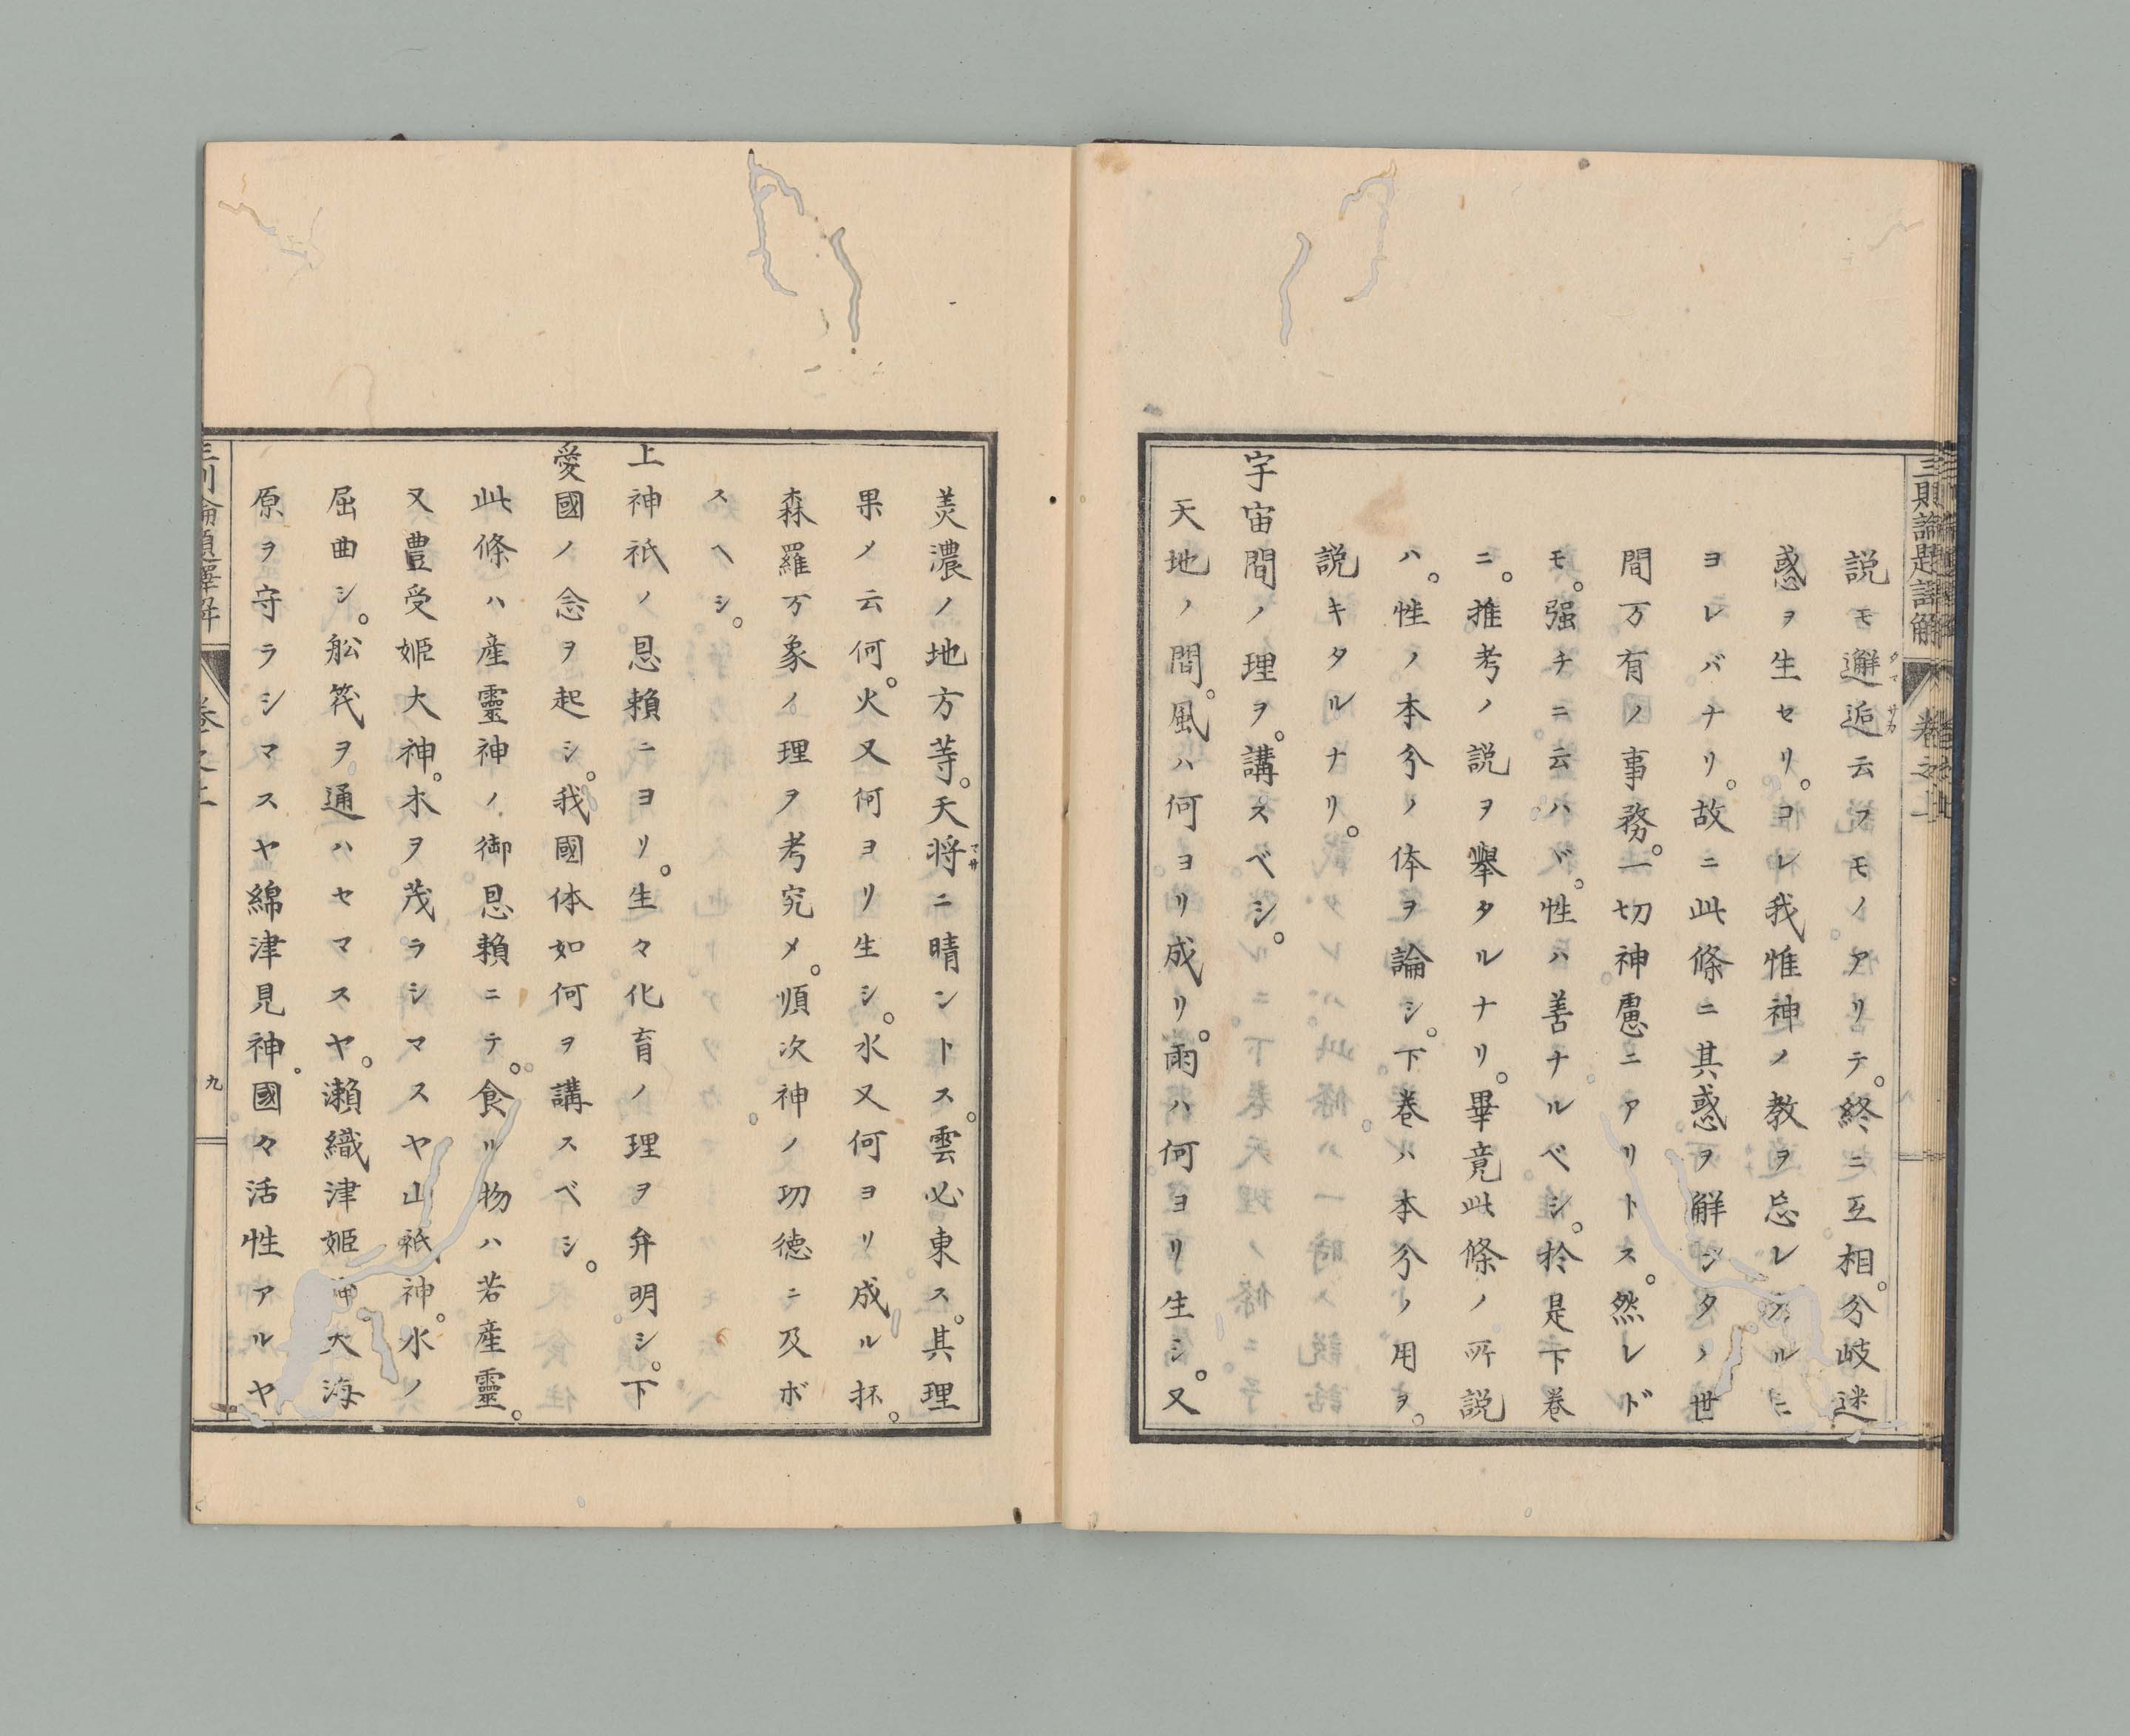 三則論題講解 卷之上
説モ邂逅云フモノアリテ。終ニ互相。分岐迷
タマサカ
惑ヲ生セリ。コレ我惟神ノ教ヲ忘レタルニ
ヨレバナリ。故ニ此條ニ其惑ヲ解ジタリ世
間万有ノ事務。一切神慮ニアリトス。然レド
モ。强チニ云ハヾ。性ハ善ナルベシ。於是下巻
ニ。推考ノ説ヲ舉タルナリ。畢竟此條ノ所説
ハ。性ノ本分ノ体ヲ論シ。下巻ハ本分ノ用ヲ。
説キタルナリ。
宇宙間ノ理ヲ。講スベシ。
天地ノ間。風ハ何ヨリ成リ。雨ハ何ヨリ生シ。又
羙濃ノ地方等。天将ニ晴ントス。雲必東ス。其理
マサ
果ノ云何。火又何ヨリ生シ。水又何ヨリ成ル抔。
森羅万象ノ理ヲ考究メ。順次神ノ功徳ニ及ボ
スヘシ。
上神祇ノ恩頼ニヨリ。生々化育ノ理ヲ弁明シ。下
愛國ノ念ヲ起シ。我國体如何ヲ講スベシ。
此條ハ産靈神ノ御恩頼ニテ。食ル物ハ若産靈。
又豊受姫大神。木ヲ茂ラシマスヤ山祇神。水ノ
屈曲シ。舩筏ヲ通ハセマスヤ。瀬織津姫神大海
原ヲ守ラシマスヤ綿津見神。國々活性アルヤ
卷之上
九